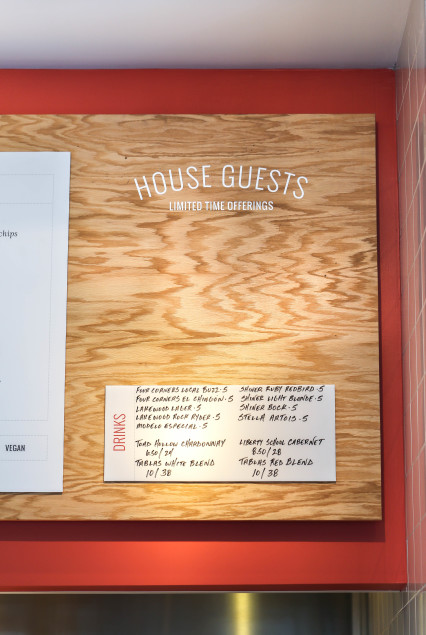 HOUSE GUESTS
LIMITED TIME OFFERINGS
chips
VEGAN
DRINKS
FOUR CORNERS LOCAL BUZZ · 5
FOUR CORNERS EL CHINGON · 5
LAKEWOOD LAGER · 5
LAKEWOOD ROCK RYDER · 5
MODELO ESPECIAL · 5
TOAD HOLLOW CHARDONNAY
6.50/24
TABLAS WHITE BLEND
10/38
SHINER RUBY REDBIRD · 5
SHINER LIGHT BLONDE · 5
SHINER BOCK · 5
STELLA ARTOIS · 5
LIBERTY SCHOOL CABERNET
8.50/28
TABLAS RED BLEND
10/38